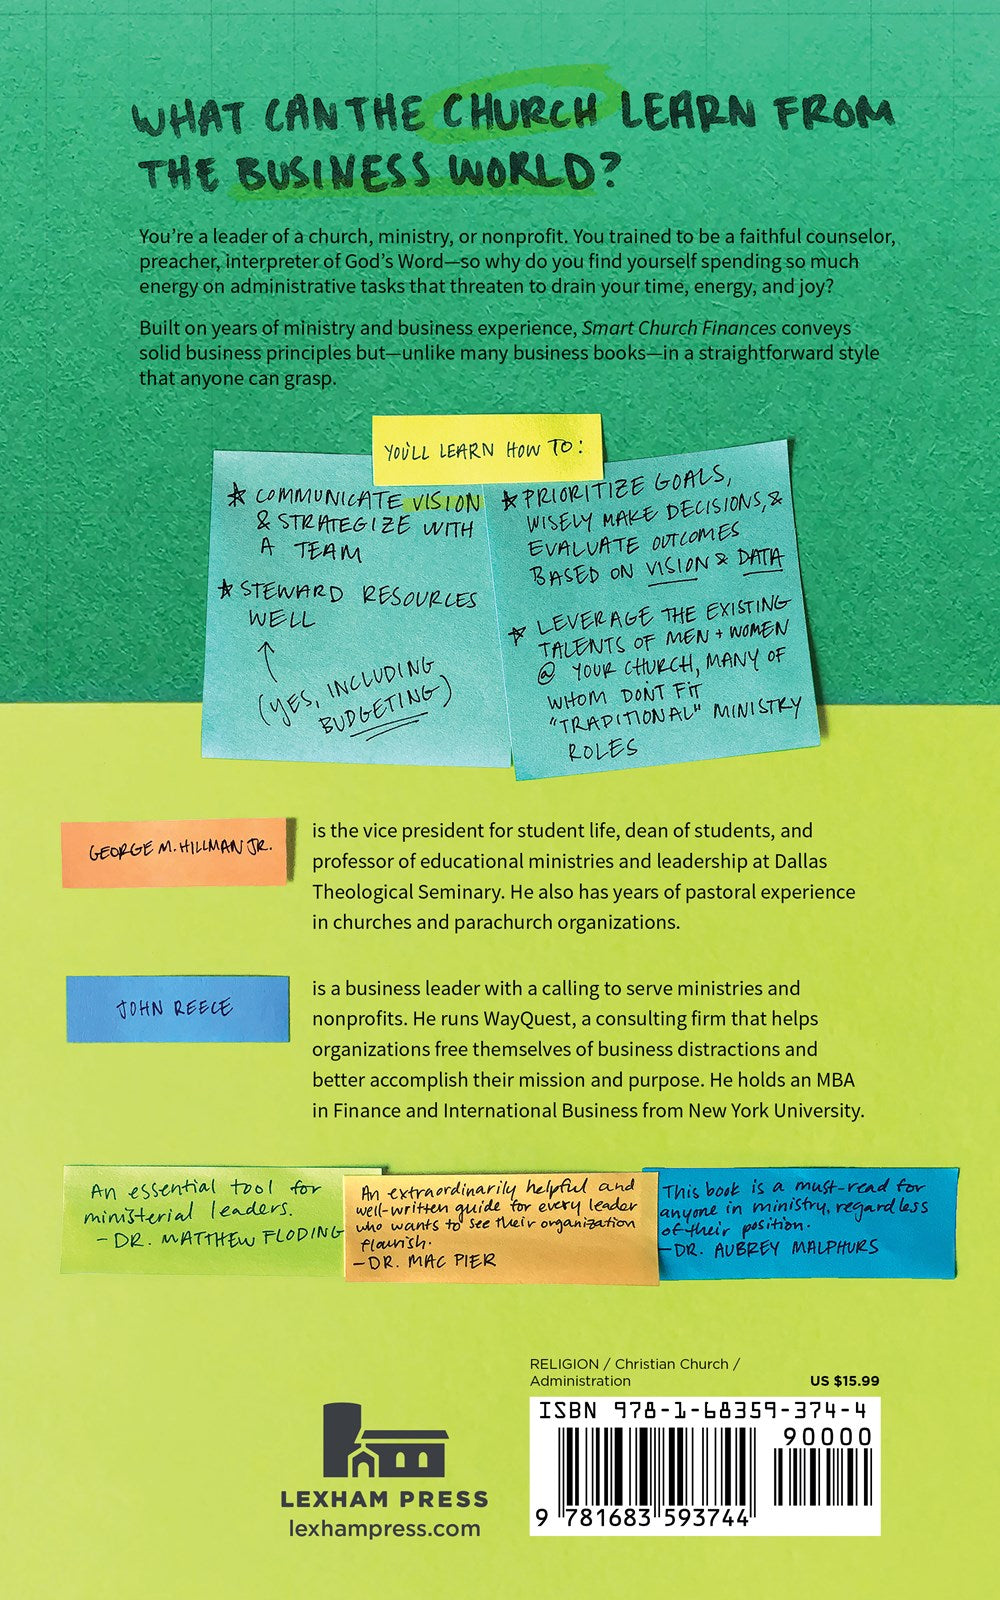 WHAT CAN THE CHURCH LEARN FROM
THE BUSINESS WORLD?
You're a leader of a church, ministry, or nonprofit. You trained to be a faithful counselor,
preacher, interpreter of God's Word—so why do you find yourself spending so much
energy on administrative tasks that threaten to drain your time, energy, and joy?
Built on years of ministry and business experience, Smart Church Finances conveys
solid business principles but—unlike many business books—in a straightforward style
that anyone can grasp.
YOU'LL LEARN HOW TO:
COMMUNICATE VISION
& STRATEGIZE WITH
A TEAM
STEWARD RESOURCES
WELL
(YES, INCLUDING
BUDGETING)
PRIORITIZE GOALS,
WISELY MAKE DECISIONS, &
EVALUATE OUTCOMES
BASED ON VISION & DATA
LEVERAGE THE EXISTING
TALENTS OF MEN + WOMEN
@ YOUR CHURCH, MANY OF
WHOM DON'T FIT
"TRADITIONAL" MINISTRY
ROLES
GEORGE M. HILLMAN JR.
is the vice president for student life, dean of students, and
professor of educational ministries and leadership at Dallas
Theological Seminary. He also has years of pastoral experience
in churches and parachurch organizations.
JOHN REECE
is a business leader with a calling to serve ministries and
nonprofits. He runs WayQuest, a consulting firm that helps
organizations free themselves of business distractions and
better accomplish their mission and purpose. He holds an MBA
in Finance and International Business from New York University.
An essential tool for
ministerial leaders.
-DR. MATTHEW FLODING
An extraordinarily helpful and
well-written guide for every leader
who wants to see their organization
flourish.
-DR. MAC PIER
This book is a must-read for
anyone in ministry, regardless
of their position.
-DR. AUBREY MALPHURS
RELIGION / Christian Church /
Administration
US $15.99
ISBN 978-1-68359-374-4
90000
9 781683 593744
LEXHAM PRESS
lexhampress.com